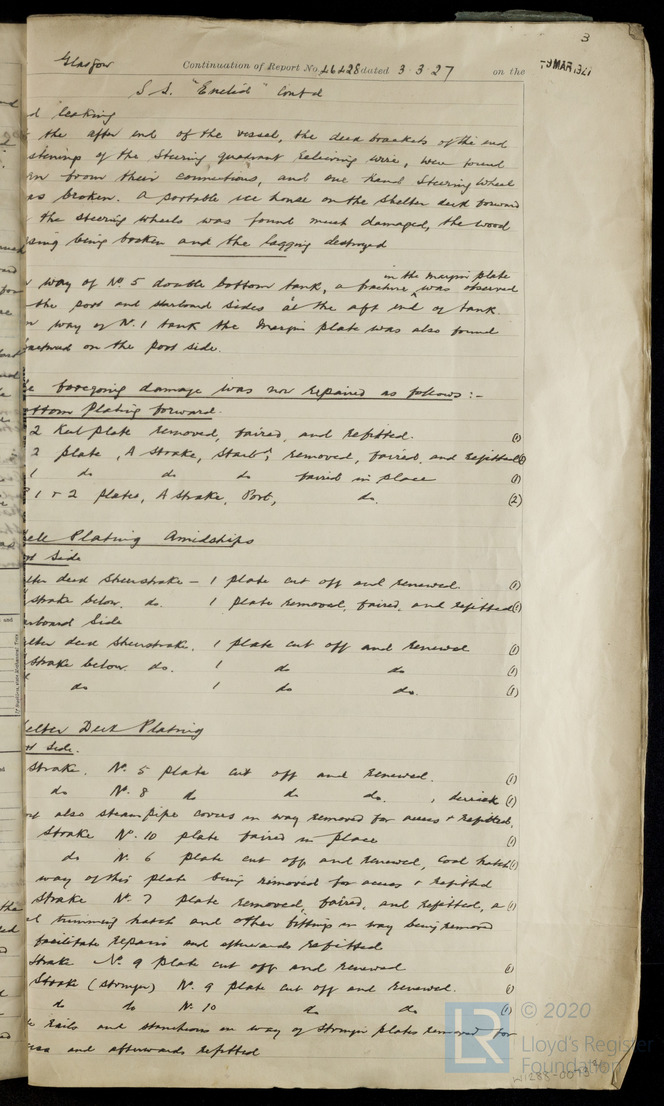 3
Glasgow Continuation of Report No. 46428 dated 3 3 27 on the
-9 MAR 1927
S.S. "Euclid" Contd
d leaking
the after end of the vessel, the deck brackets of the end
stenings of the Steering quadrant Relieving wire, were found
rn from their connections, and one hand Steering wheel
as broken. A portable ice house on the Shelter deck forward
the steering wheels was found much damaged, the wood
sing being broken and the lagging destroyed
in the margin plate
way of No. 5 double bottom tank, a fracture was observed
the port and starboard sides at the aft end of tank.
way of No. 1 tank the margin plate was also found
actured on the port side.
e foregoing damage was now repaired as follows:-
ottom Plating forward.
2 Keel plate removed, faired, and refitted. (1)
2 plate, A strake, Starbd, removed, faired, and refitted (1)
1 do do do faired in place (1)
1 & 2 plates, A strake, Port, do. (2)
ell Plating Amidships
rt Side
lter deck Sheerstrake - 1 plate cut off and renewed. (1)
strake below. do. 1 plate removed, faired, and refitted (1)
arboard Side
lter deck Sheerstrake. 1 plate cut off and renewed (1)
strake below do. 1 do do (1)
do 1 do do. (1)
elter Deck Plating
rt Side.
Strake. No. 5 plate cut off and renewed. (1)
do No. 8 do do do. , derrick (1)
also steam pipe covers in way removed for access & refitted.
Strake No. 10 plate faired in place (1)
do No. 6 plate cut off and renewed, coal hatch (1)
way of this plate being removed for access & refitted
Strake No. 7 plate removed, faired, and refitted, a (1)
l trimming hatch and other fittings in way being removed
facilitate repairs and afterwards refitted
Strake No. 9 plate cut off and renewed (1)
Strake (stringer) No. 9 plate cut off and renewed. (1)
do do No. 10 do do (1)
rails and stanchions in way of Stringer plates removed for
cess and afterwards refitted
LR
© 2020
Lloyd's Register
Foundation
W1288-0073